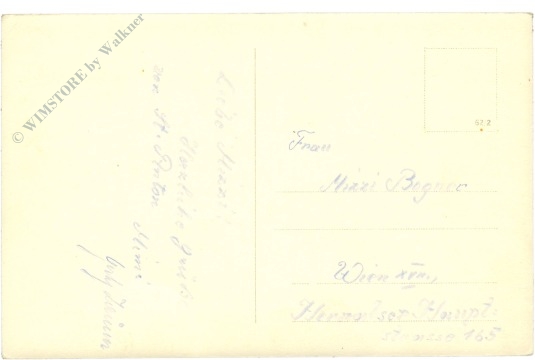 © WIMSTORE by Walkner
Liebe Mizzi!
Herzliche Grüße
von St. Anton
Mimi
62/2
Frau
Mizzi Bogner
Wien XVII.,
Hernalser Haupt-
strasse 165